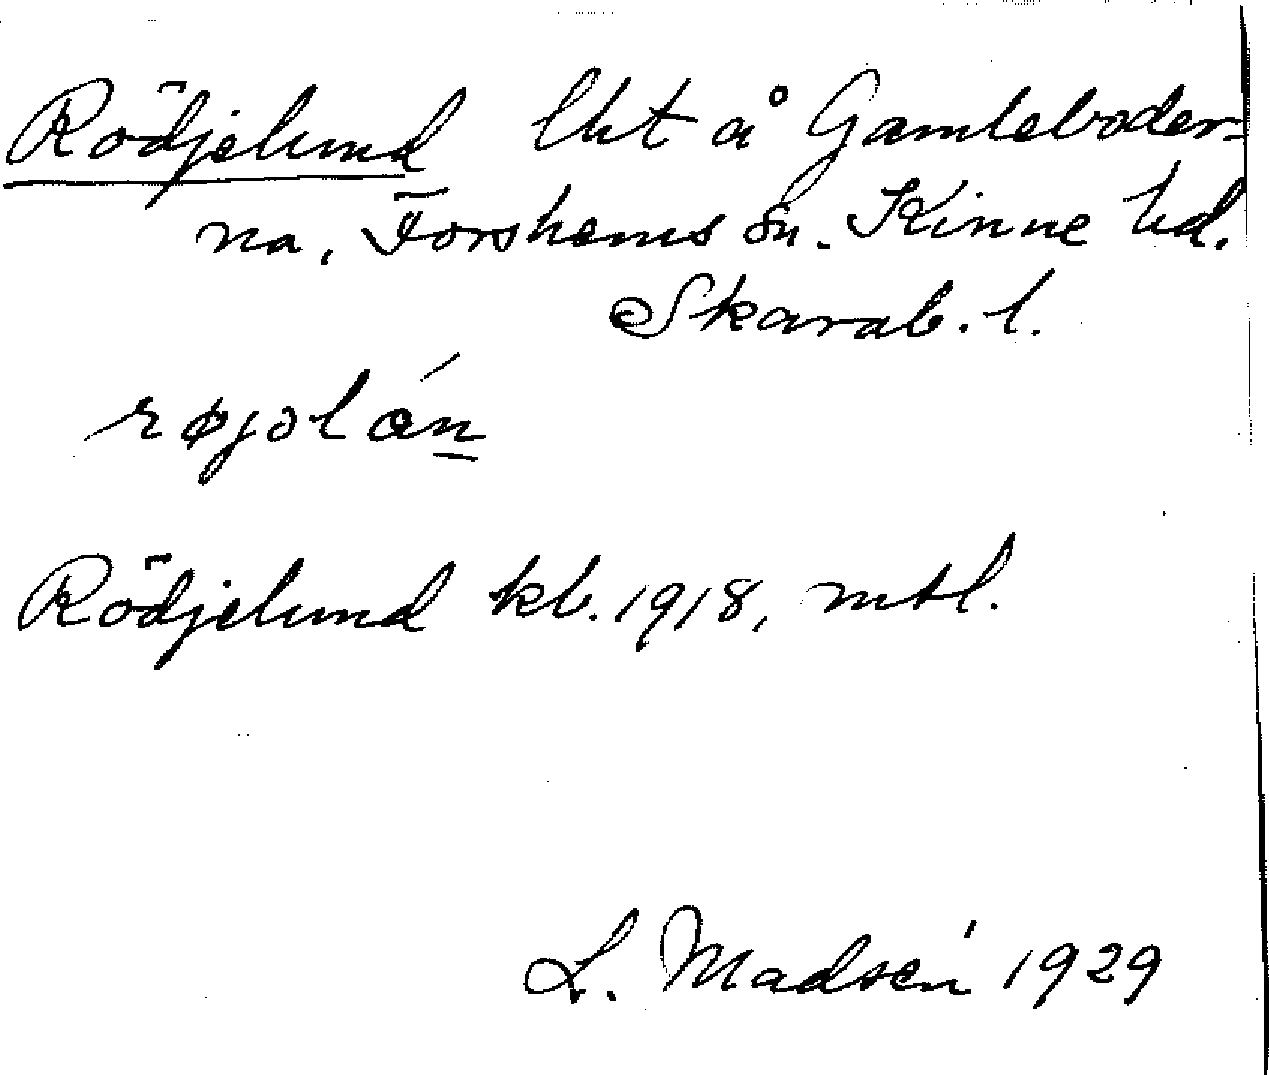 Rödjelund lht å Gamleboder-
na, Forshems sn. Kinne hd.
Skarab. l.
røjəlán
Rödjelund kb. 1918, mtl.
L. Madsén 1929